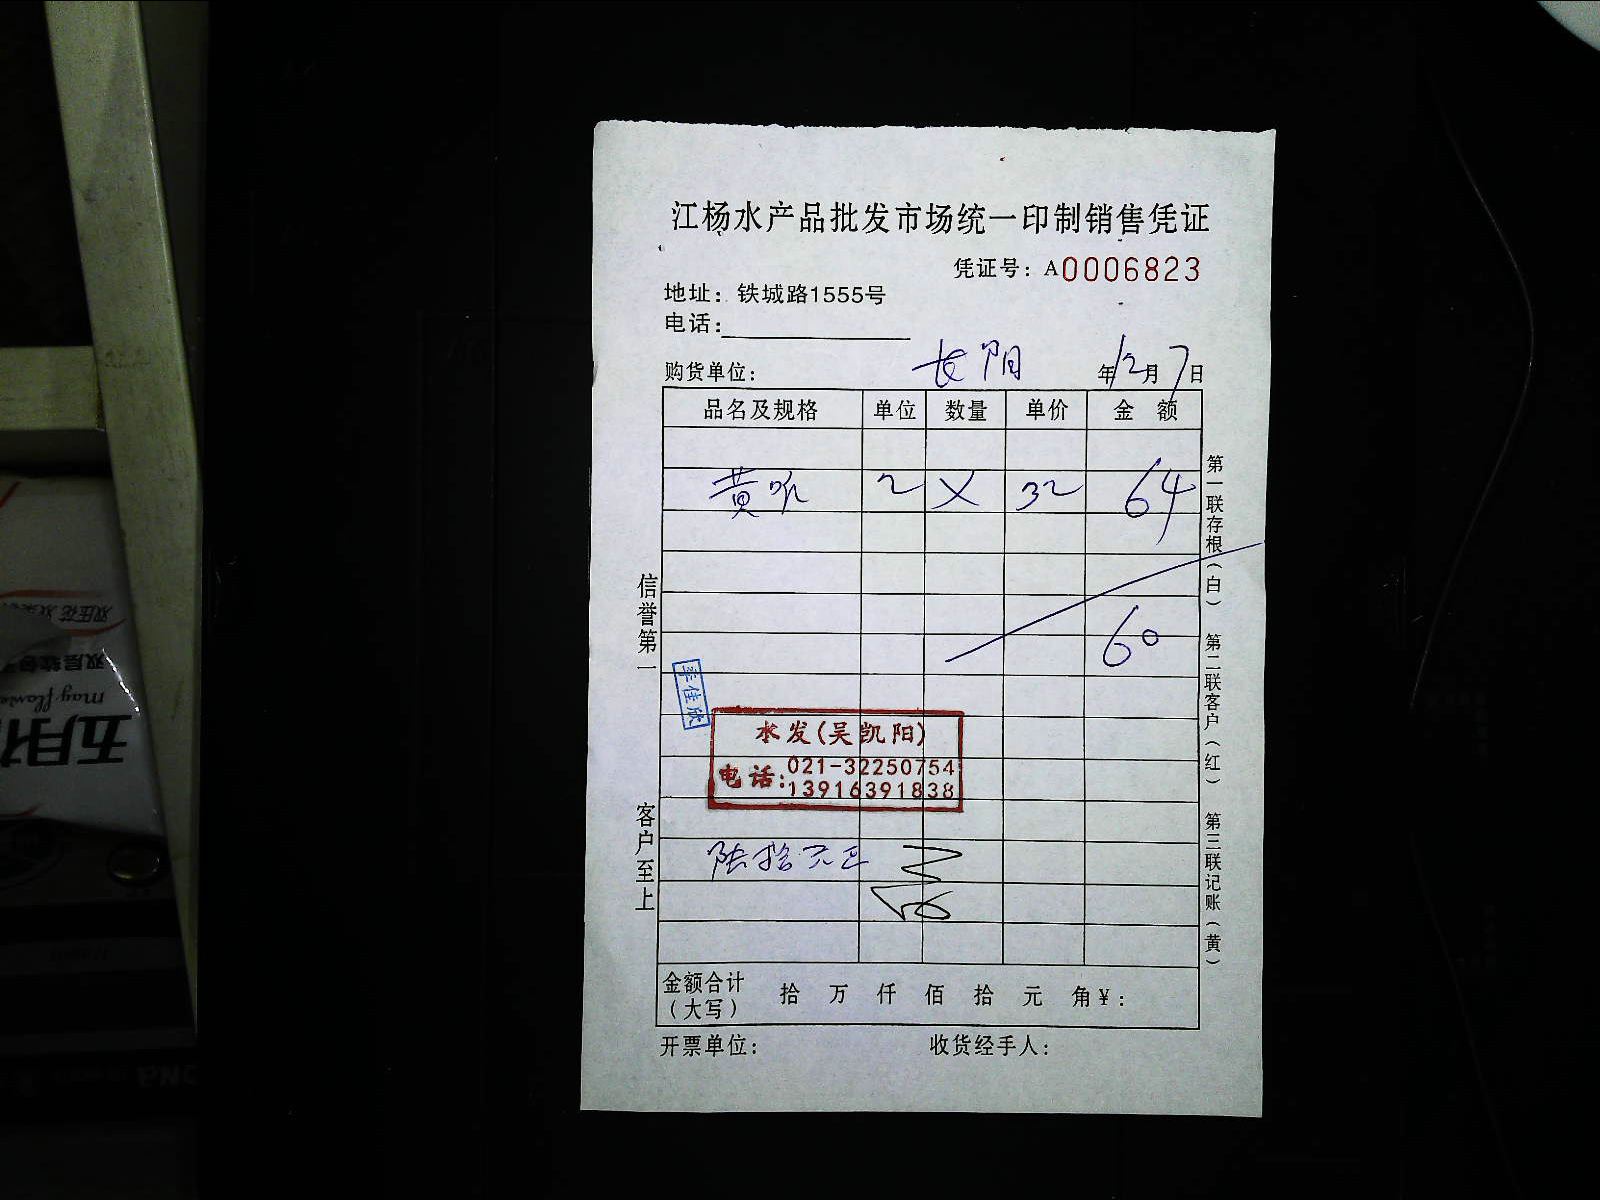 江杨水产品批发市场统一印制销售凭证
凭证号：A0006823
地址：铁城路1555号
电话：
购货单位：长阳 年12月7日
品名及规格 单位 数量 单价 金额
黄 2 X 32 64
60
信誉第一
客户至上
李佳欣
水发(吴凯阳)
电话：021-32250754
13916391838
陆拾元正
金额合计
（大写） 拾 万 仟 佰 拾 元 角￥：
开票单位： 收货经手人：
第一联存根（白）
第二联客户（红）
第三联记账（黄）
双层软包
may flower
五月花